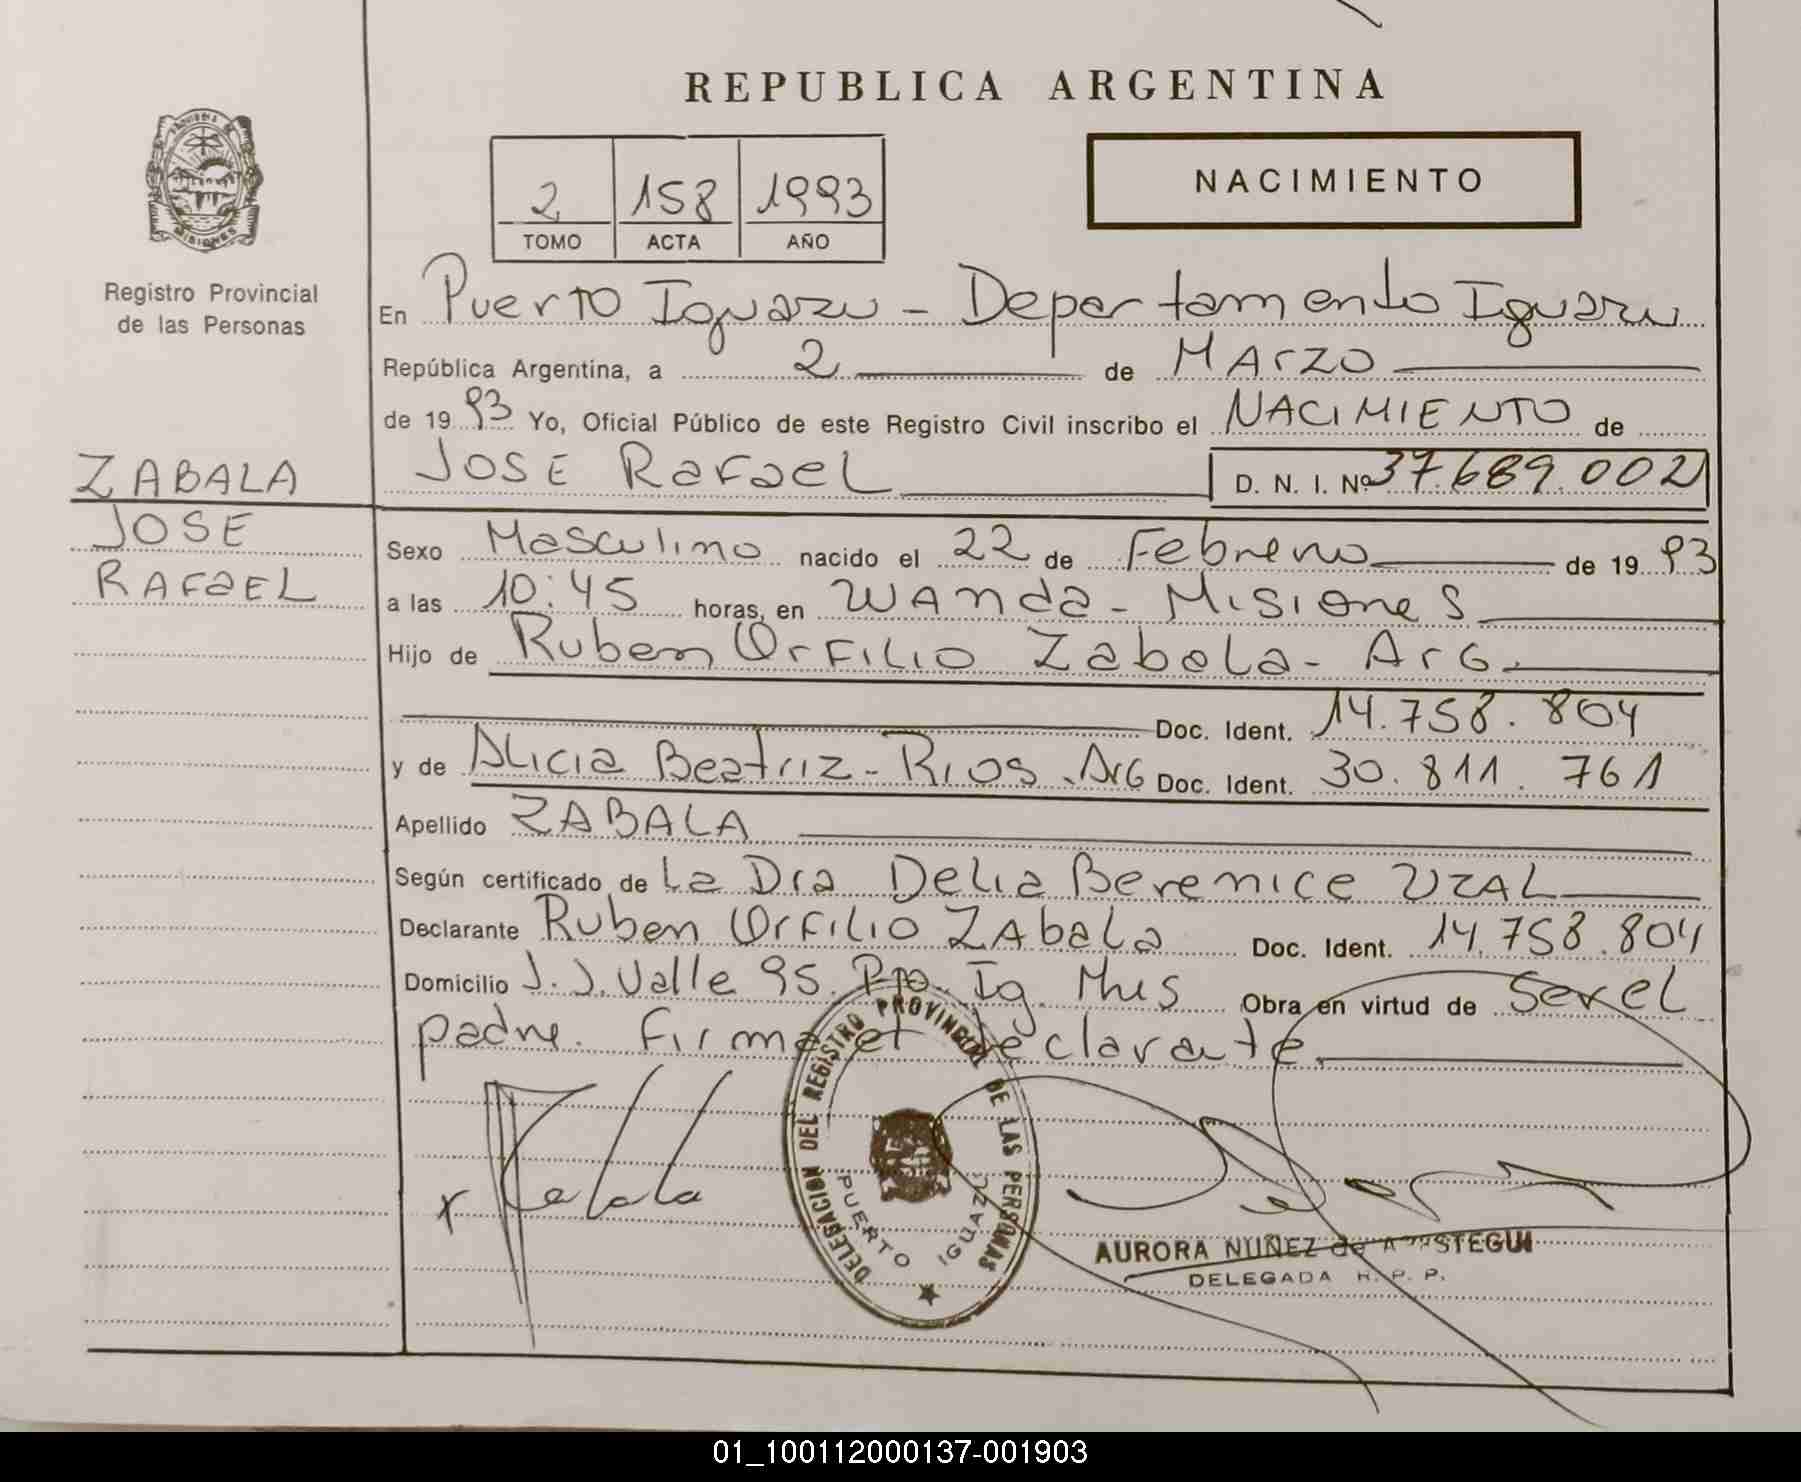 REPUBLICA ARGENTINA
PROVINCIA DE
MISIONES
Registro Provincial
de las Personas
2 158 1993
TOMO ACTA AÑO
NACIMIENTO
En Puerto Iguazu - Departamento Iguazu
República Argentina, a 2 de MArzo
de 19 93 Yo, Oficial Público de este Registro Civil inscribo el NACIMIENTO de
JOSE Rafael D. N. I. Nº 37.689.002
ZABALA
JOSE
RAFAEL
Sexo Masculino nacido el 22 de Febrero de 19 93
a las 10:45 horas, en WANda - Misiones
Hijo de Ruben Orfilio Zabala - Arg.
Doc. Ident. 14.758.804
y de Alicia Beatriz - Rios - Arg Doc. Ident. 30.811.761
Apellido ZABALA
Según certificado de La Dra Delia Berenice UZAL
Declarante Ruben Orfilio ZAbala Doc. Ident. 14.758.804
Domicilio J. J. Valle 95. Pto. Ig. Mns Obra en virtud de Ser el
padre. Firma el declarante
x Zabala
DELEGACION DEL REGISTRO PROVINCIAL DE LAS PERSONAS
PUERTO IGUAZU
AURORA NUÑEZ de
DELEGADA R. P. P.
01_100112000137-001903